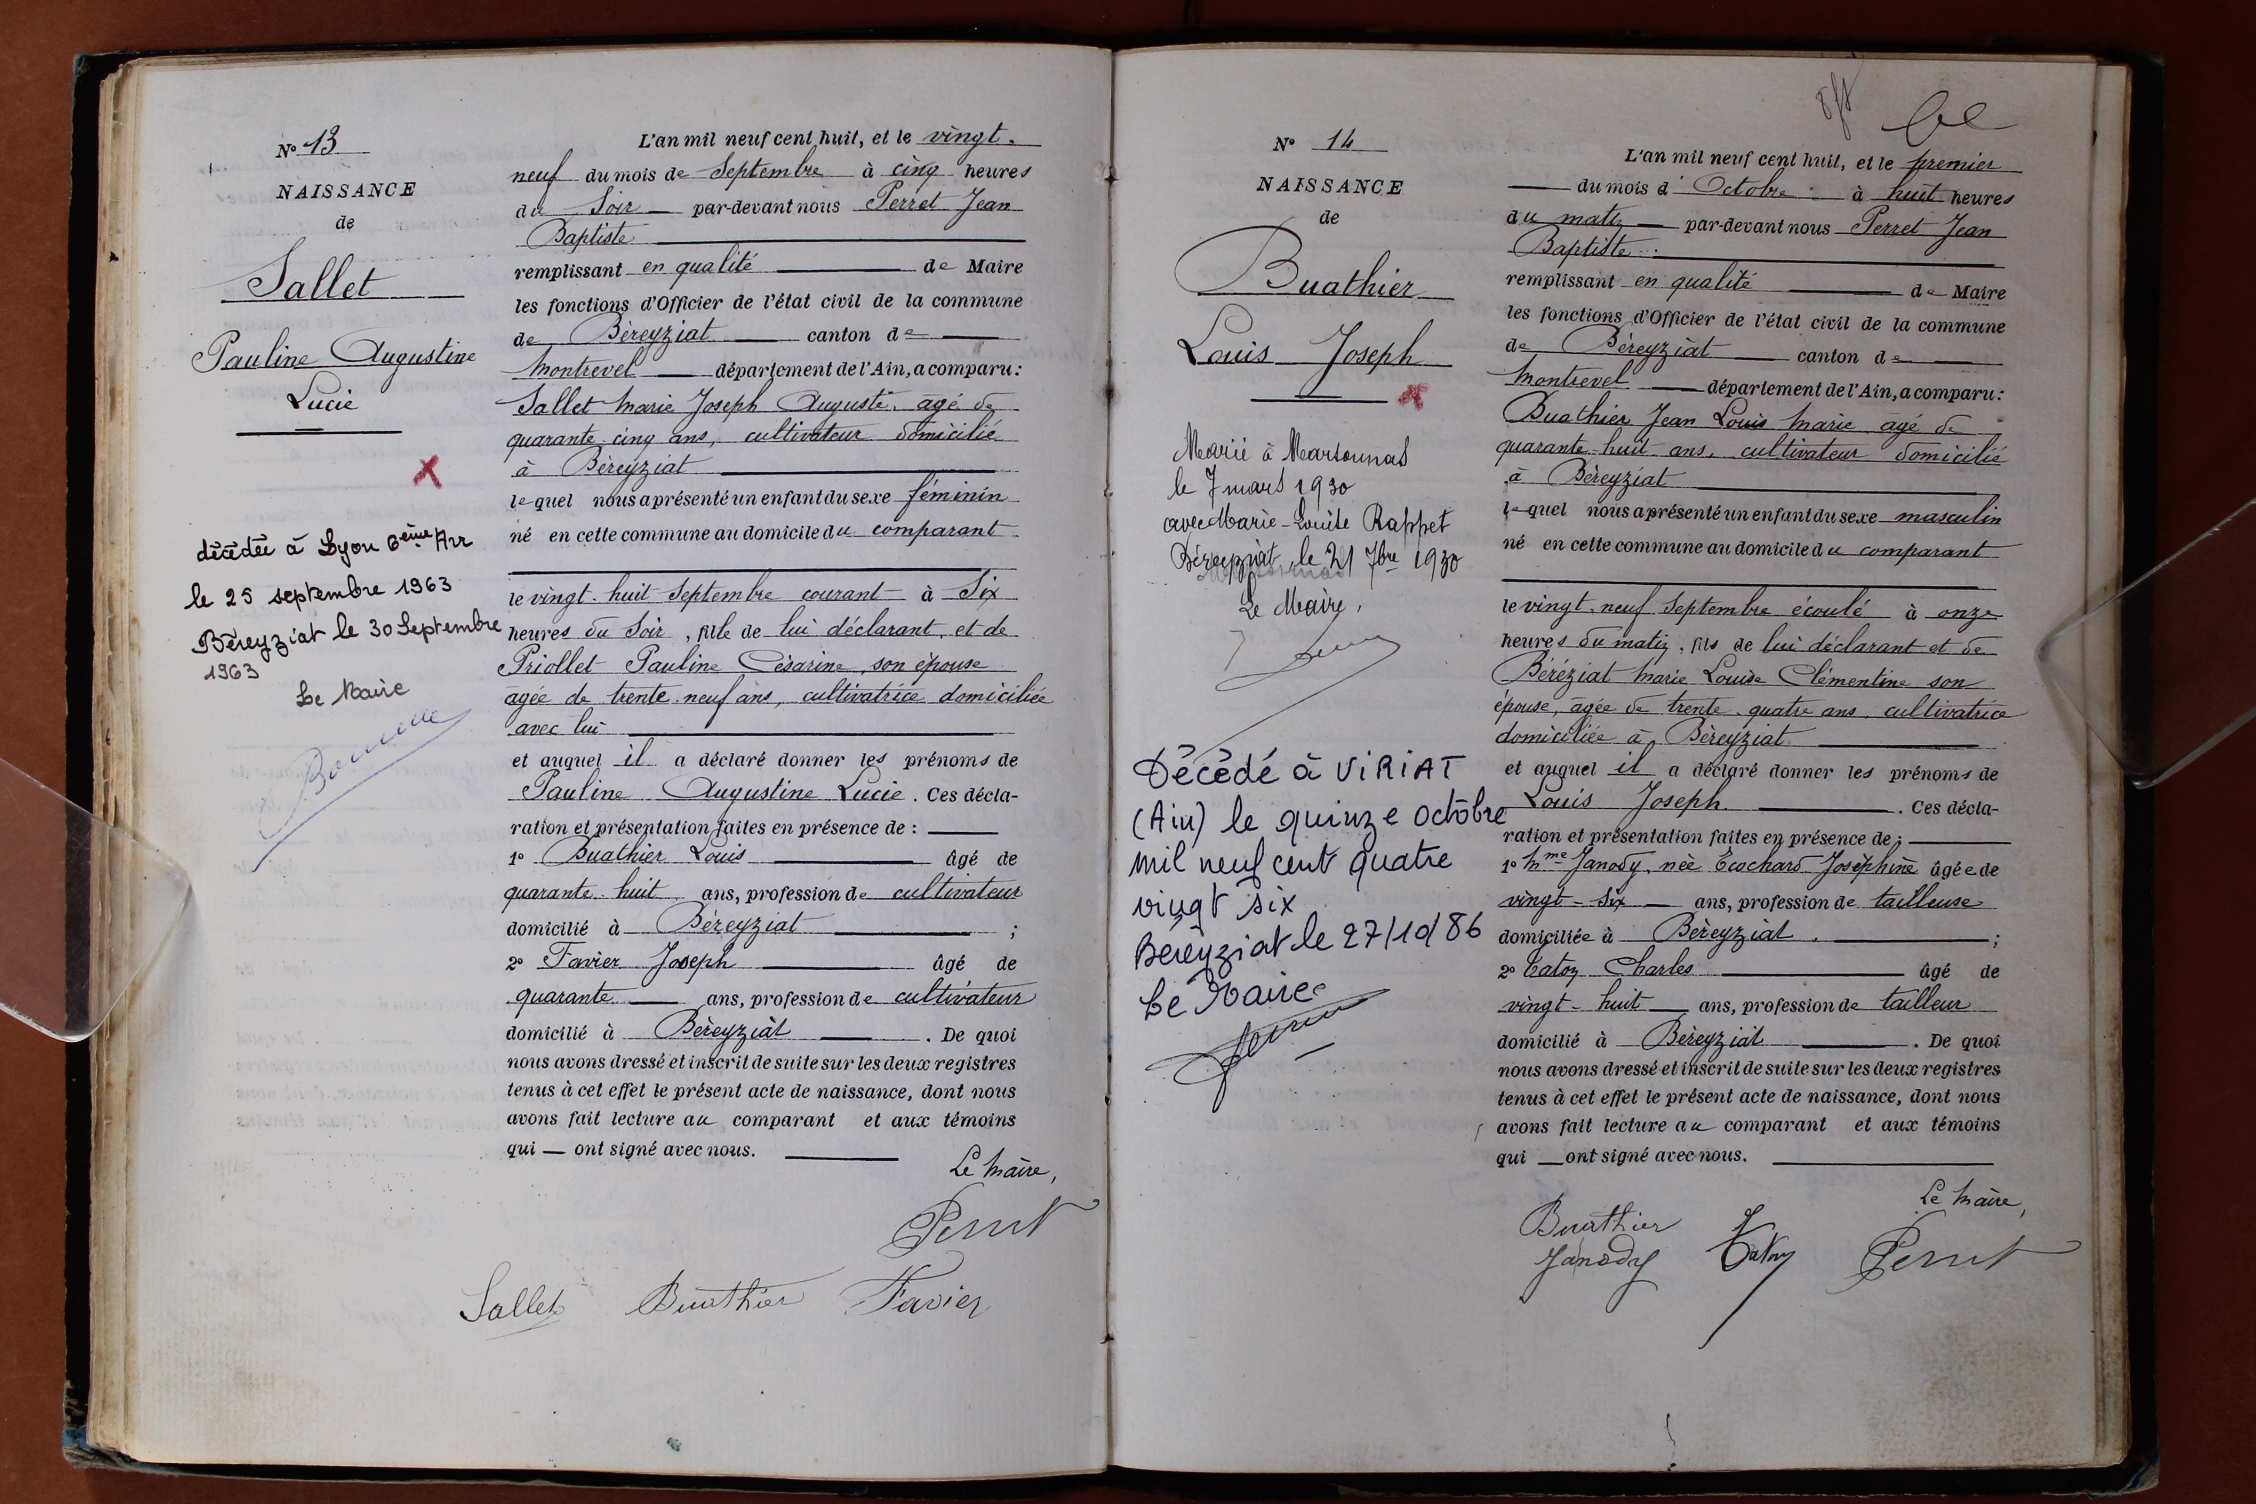 N° 13
NAISSANCE
de
Sallet
Pauline Augustine
Lucie
décédée à Lyon 6ème Arr
le 25 septembre 1963
Béreyziat le 30 Septembre
1963
Le Maire
L'an mil neuf cent huit, et le vingt-
neuf du mois de Septembre à cinq heures
du Soir par-devant nous Perret Jean
Baptiste
remplissant en qualité de Maire
les fonctions d'Officier de l'état civil de la commune
de Béreyziat canton de
Montrevel département de l'Ain, a comparu :
Sallet Marie Joseph Auguste, agé de
quarante-cinq ans, cultivateur domicilié
à Béreyziat
lequel nous a présenté un enfant du sexe féminin
né en cette commune au domicile du comparant
le vingt-huit Septembre courant à Six
heures du Soir, fille de lui déclarant, et de
Priollet Pauline Césarine, son épouse
agée de trente-neuf ans, cultivatrice domiciliée
avec lui
et auquel il a déclaré donner les prénoms de
Pauline Augustine Lucie. Ces décla-
ration et présentation faites en présence de :
1° Buathier Louis âgé de
quarante-huit ans, profession de cultivateur
domicilié à Béreyziat ;
2° Favier Joseph âgé de
quarante ans, profession de cultivateur
domicilié à Béreyziat . De quoi
nous avons dressé et inscrit de suite sur les deux registres
tenus à cet effet le présent acte de naissance, dont nous
avons fait lecture au comparant et aux témoins
qui — ont signé avec nous.
Le Maire,
Perret
Sallet Buathier Favier
N° 14
NAISSANCE
de
Buathier
Louis Joseph
Marié à Marsonnas
le 7 mars 1930
avec Marie-Louise Rappet
Béreyziat, le 21 7bre 1930
Le Maire,
Décédé à VIRIAT
(Ain) le quinze octobre
mil neuf cent quatre
vingt six
Béreyziat le 27/10/86
Le Maire
L'an mil neuf cent huit, et le premier
du mois d'Octobre à huit heures
du matin par-devant nous Perret Jean
Baptiste
remplissant en qualité de Maire
les fonctions d'Officier de l'état civil de la commune
de Béreyziat canton de
Montrevel département de l'Ain, a comparu :
Buathier Jean Louis Marie agé de
quarante-huit ans, cultivateur domicilié
à Béreyziat
lequel nous a présenté un enfant du sexe masculin
né en cette commune au domicile du comparant
le vingt-neuf Septembre écoulé à onze
heures du matin, fils de lui déclarant et de
Béréziat Marie Louise Clémentine son
épouse, âgée de trente-quatre ans, cultivatrice
domiciliée à Béreyziat
et auquel il a déclaré donner les prénoms de
Louis Joseph . Ces décla-
ration et présentation faites en présence de :
1° Mme Janody, née Ecochard Joséphine âgée de
vingt-six ans, profession de tailleuse
domiciliée à Béreyziat. ;
2° Caton Charles âgé de
vingt-huit ans, profession de tailleur
domicilié à Béreyziat . De quoi
nous avons dressé et inscrit de suite sur les deux registres
tenus à cet effet le présent acte de naissance, dont nous
avons fait lecture au comparant et aux témoins
qui — ont signé avec nous.
Le Maire,
Buathier
Janody Caton Perret